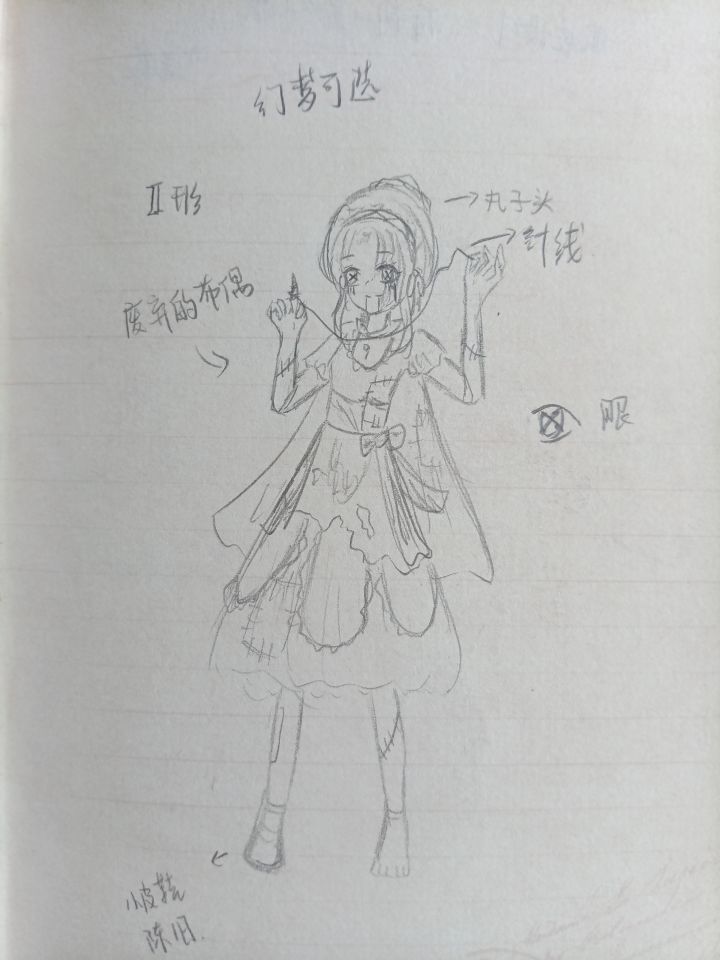 幻梦可选
II形
丸子头
针线
废弃的布偶
眼
小皮鞋
陈旧.